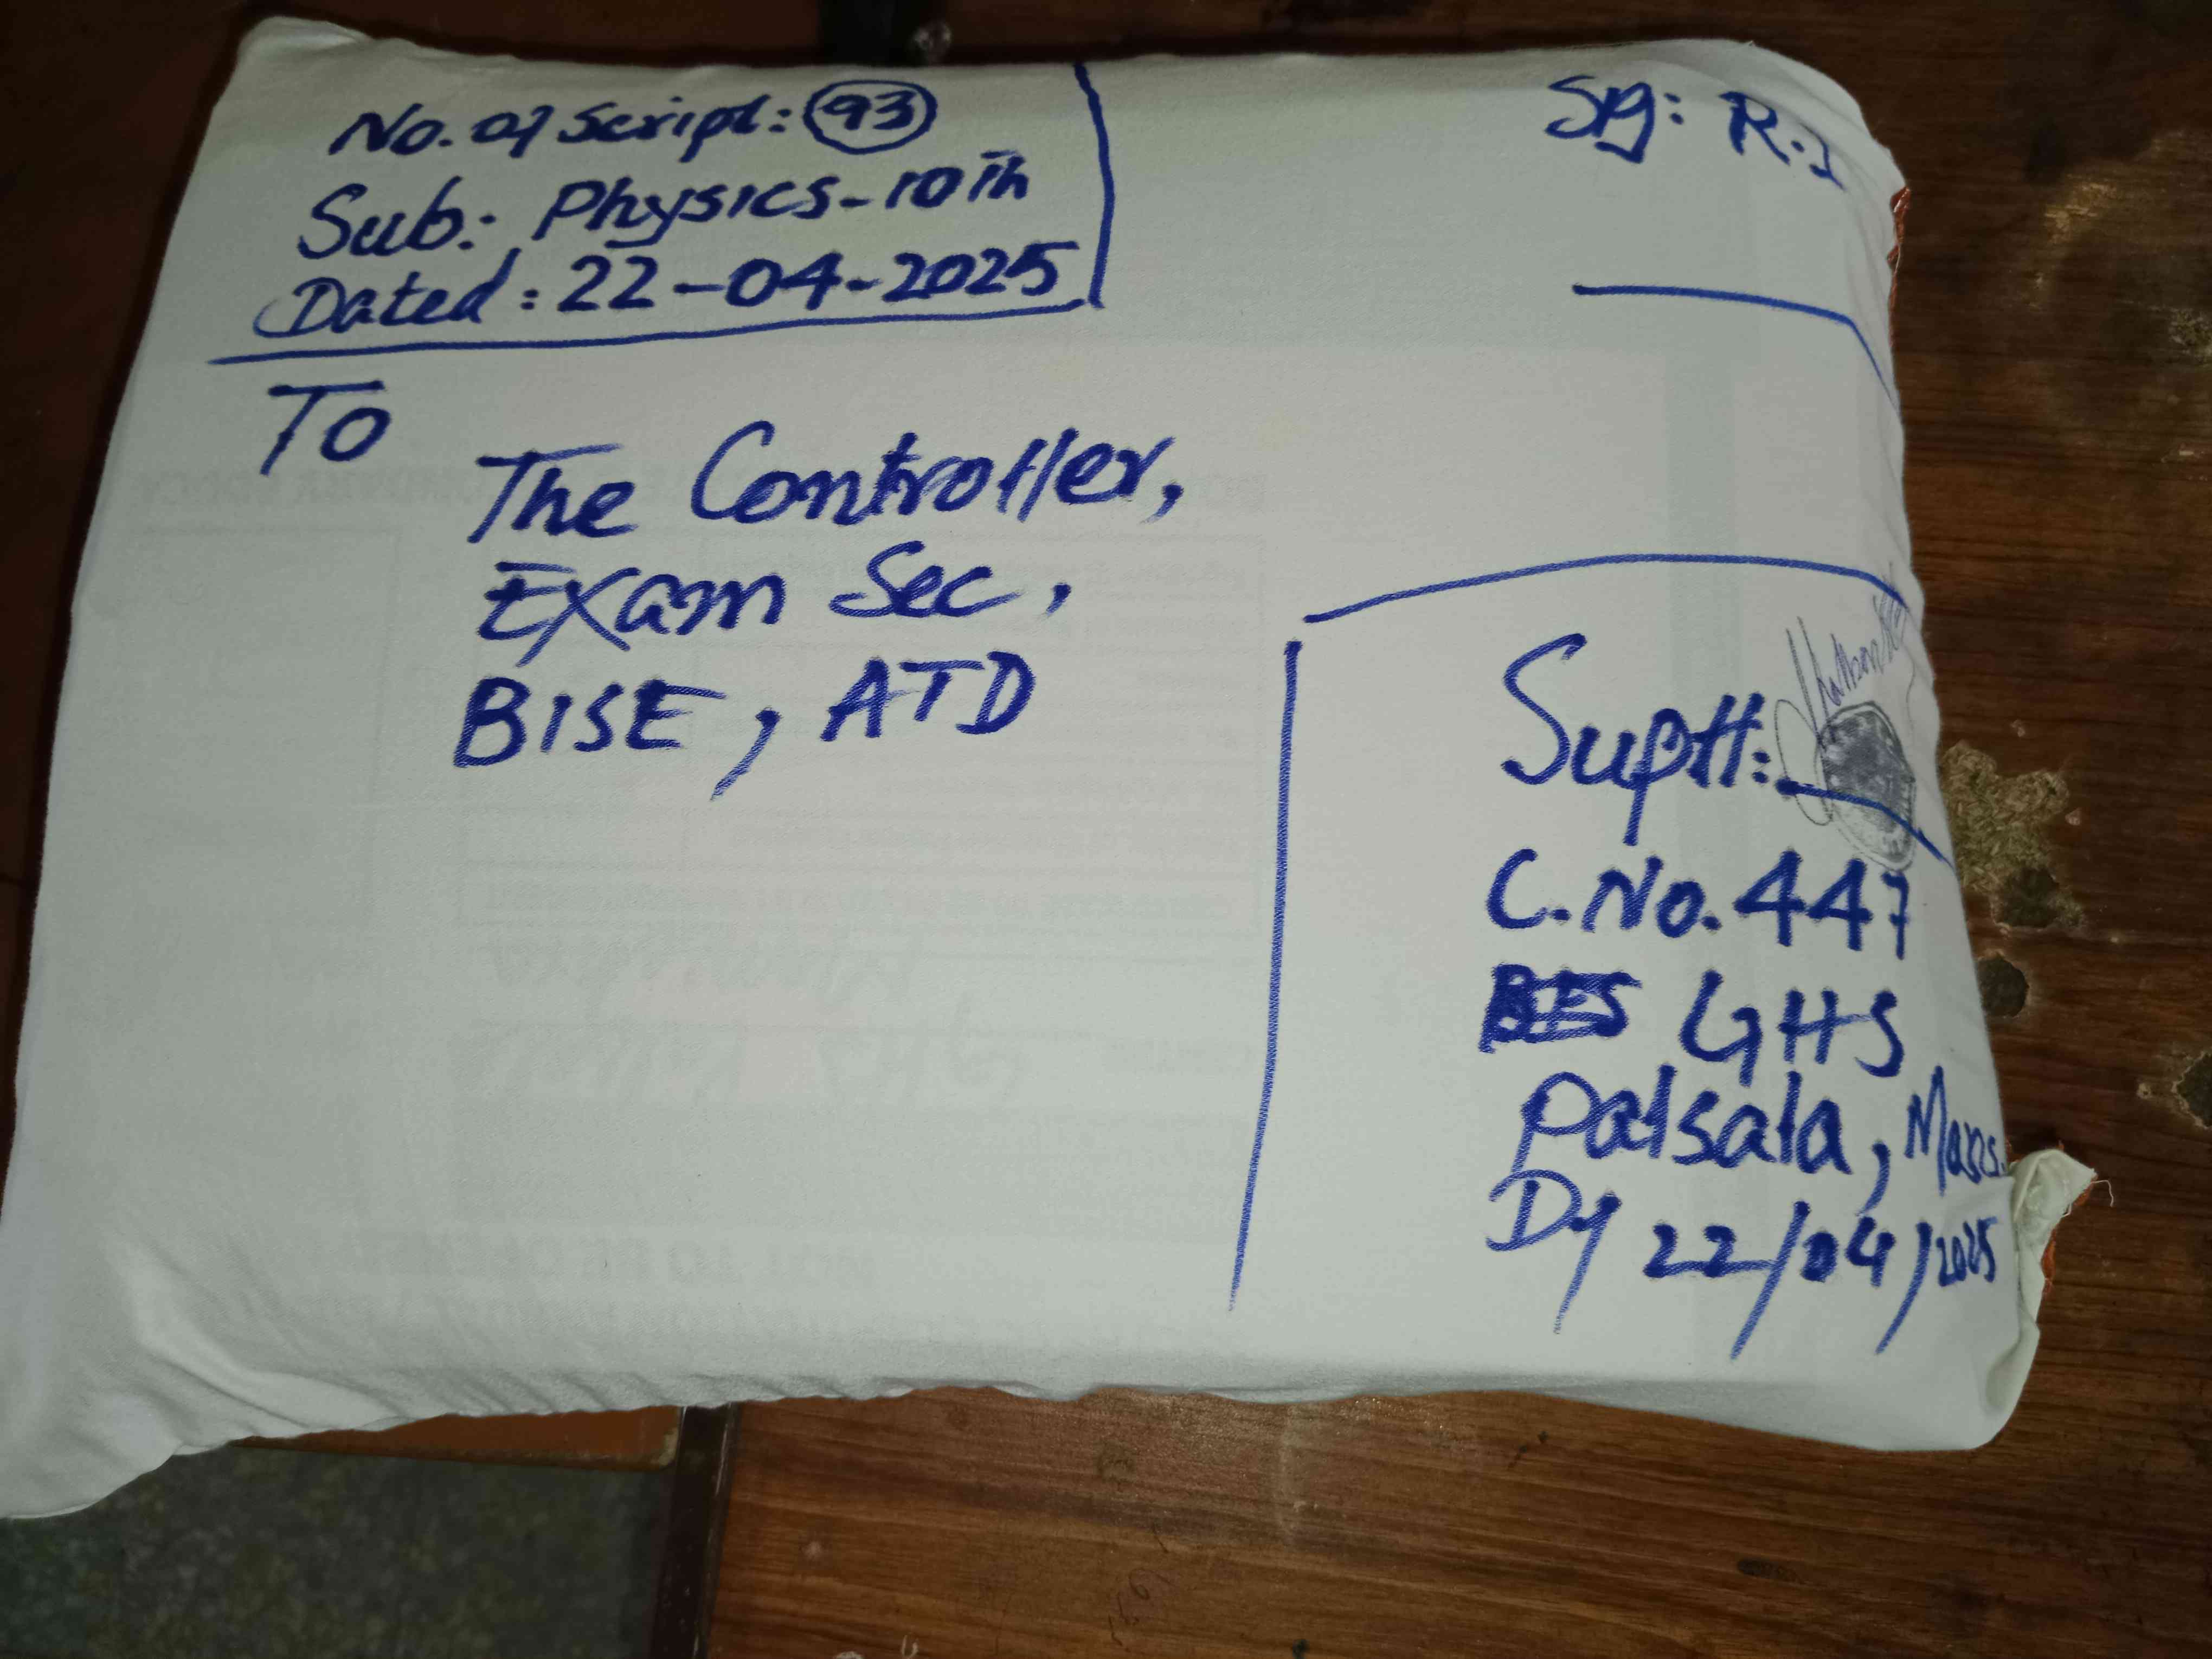 No. of Script: 93
Sub: Physics-10th
Dated: 22-04-2025
Sig: R.I
To
The Controller,
Exam Sec,
BISE, ATD
Suptt:
C.No. 447
GHS
Palsala, Mans.
Dt 22/04/2025